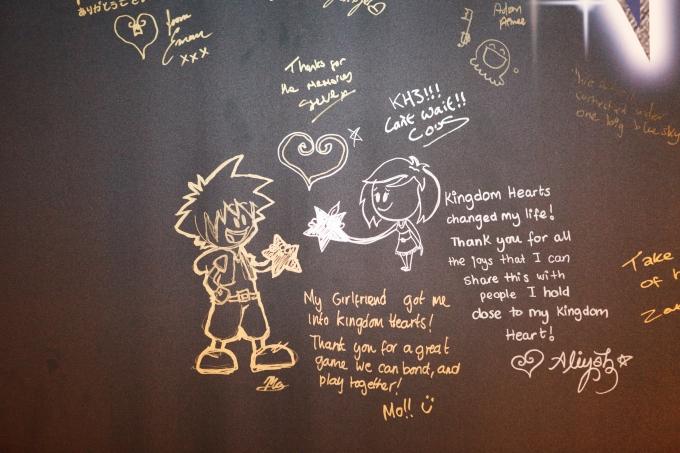 ありがとうございま
from
Emma
xxx
Adam
Thanks for
the memories
KH3!!!
Can't wait!!
one long blue sky
Kingdom Hearts
changed my life!
Thank you for all
the joys that I can
share this with
people I hold
close to my Kingdom
Heart!
Take
of h
My Girlfriend got me
into Kingdom Hearts!
Thank you for a great
game we can bond, and
play together!
Mo!!
Mo